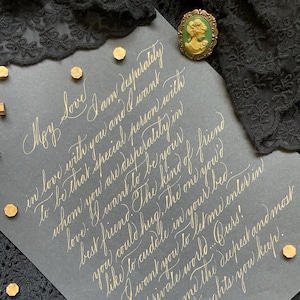 My Love! I am desperately
in love with you and I want
To be that special person with
whom you are desperately in
love. I want to be your
best friend. The kind of friend
you could hug, the one you'd
like to cuddle in your bed.
I want you to let me enter in
private world. Ours!
me the deepest and most
you keep.